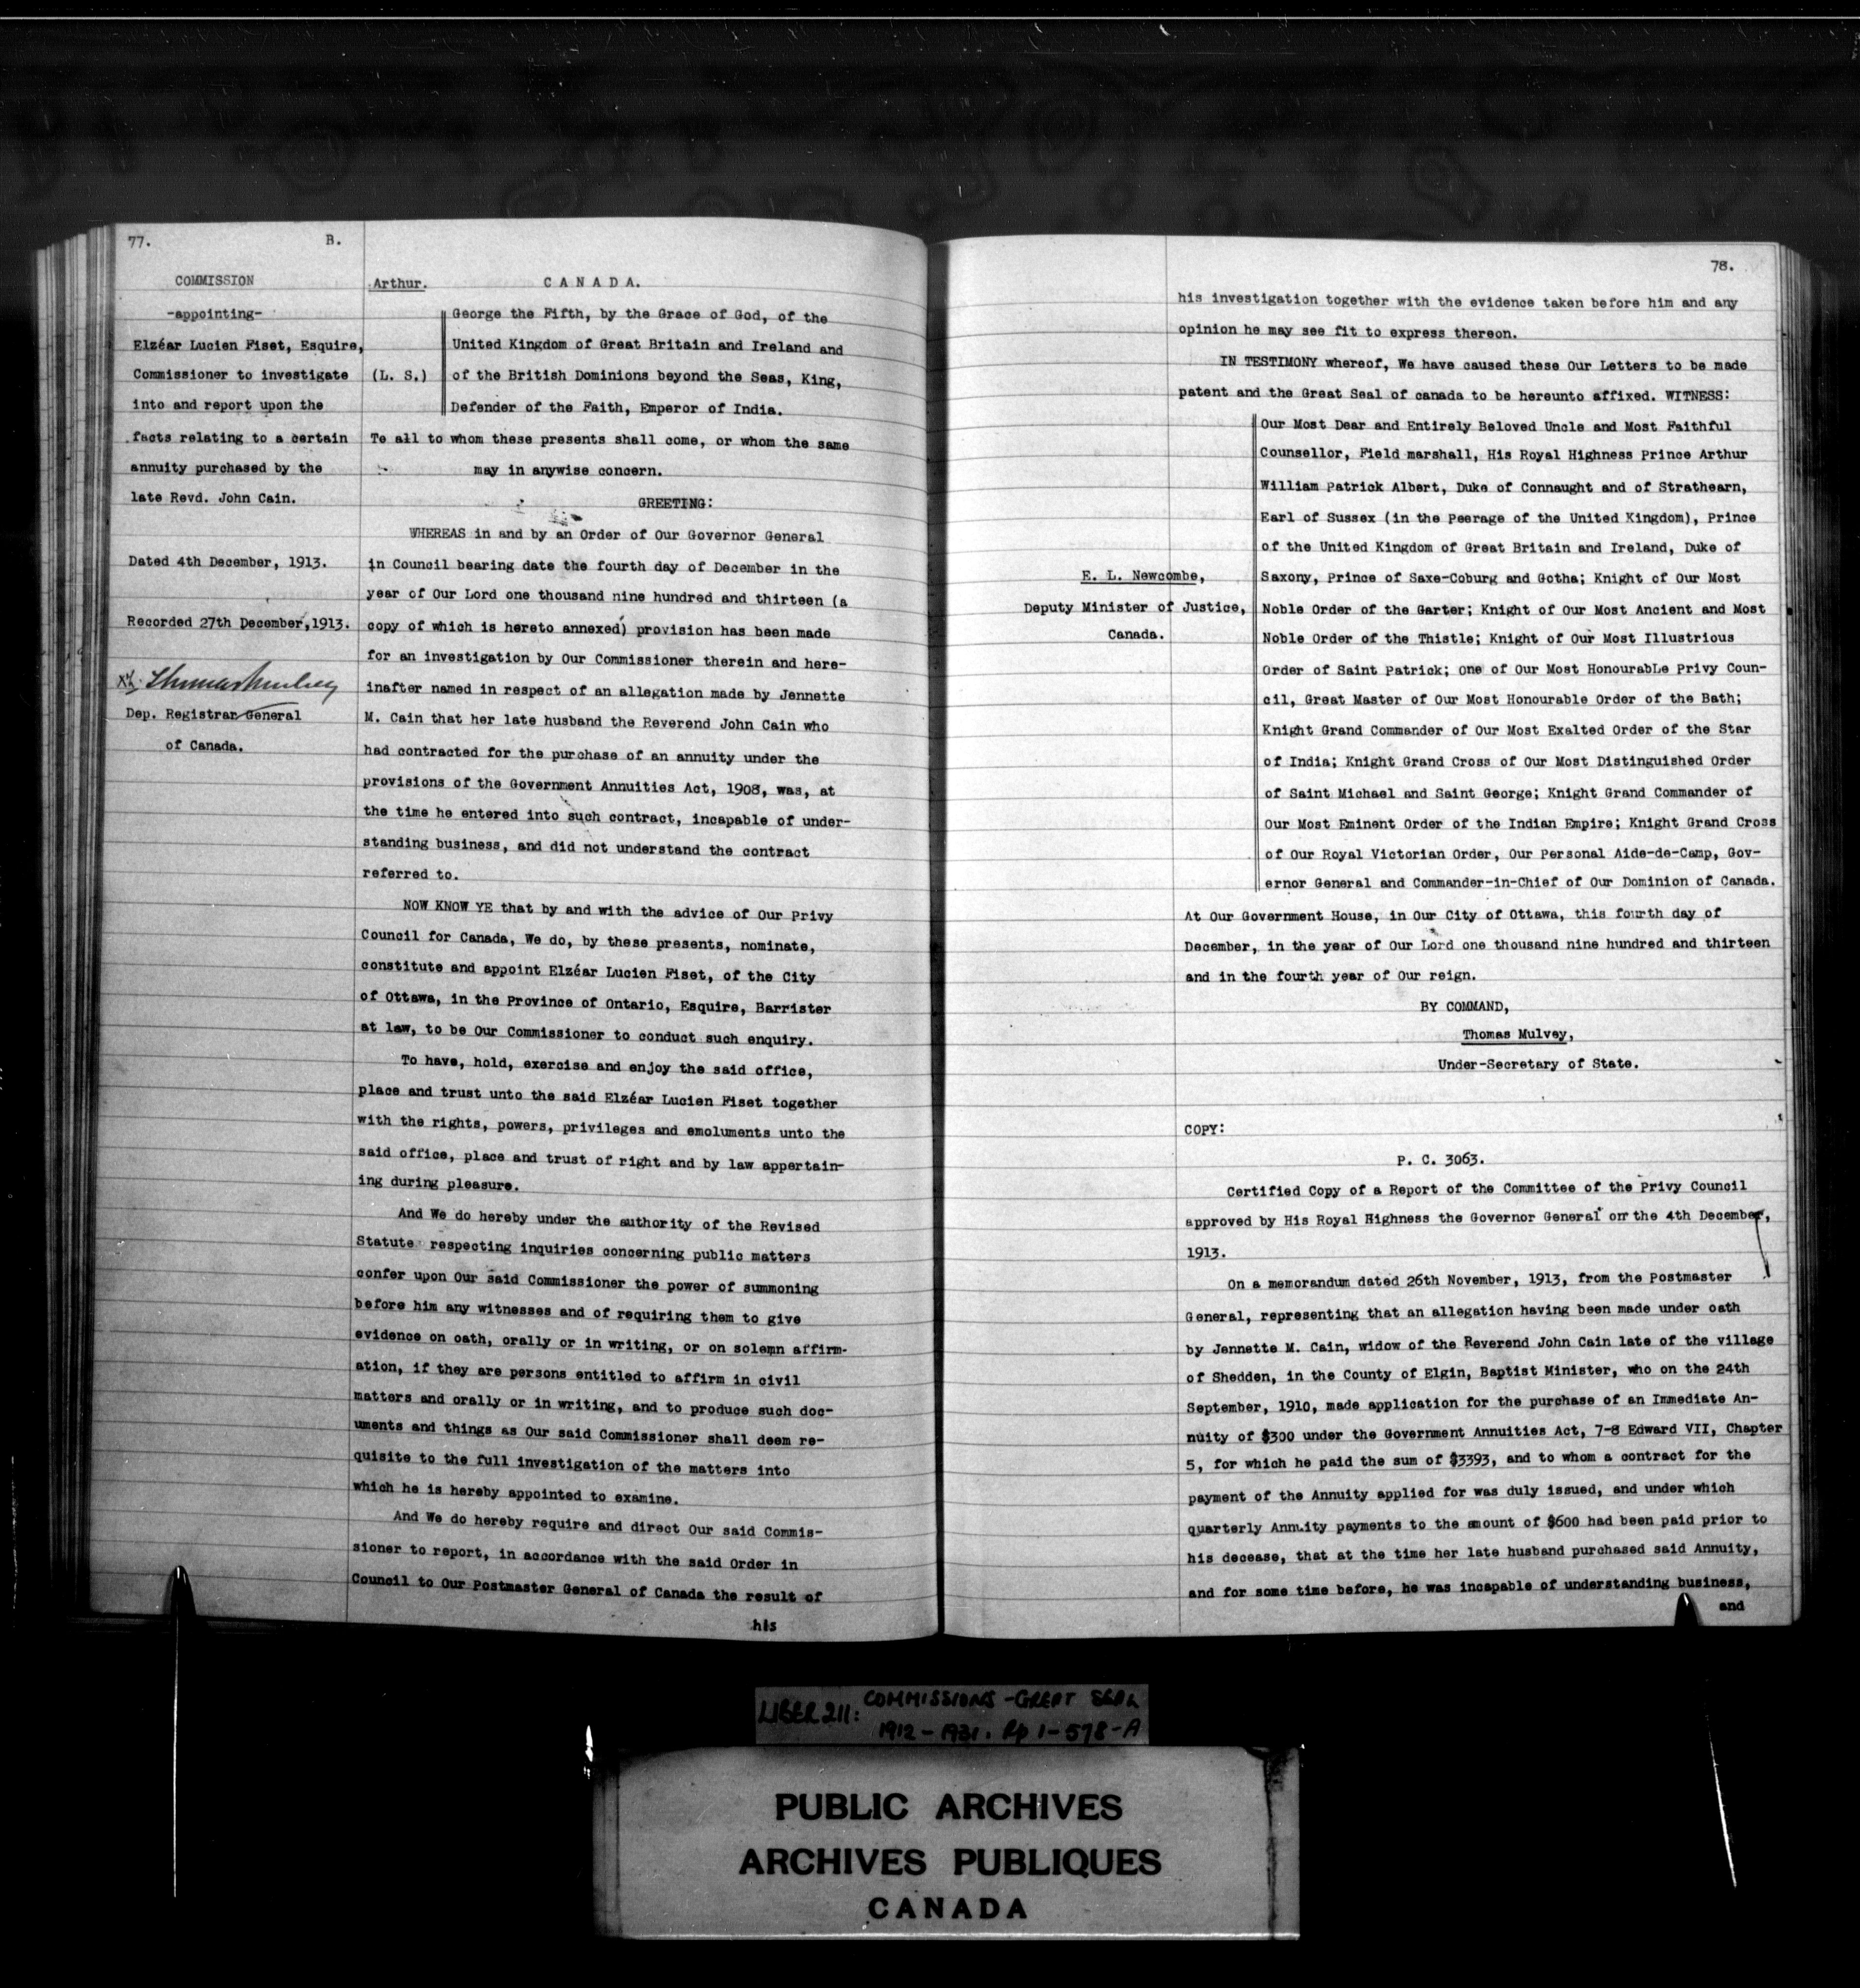 77. B.
COMMISSION
-appointing-
Elzéar Lucien Fiset, Esquire,
Commissioner to investigate
into and report upon the
facts relating to a certain
annuity purchased by the
late Revd. John Cain.
Dated 4th December, 1913.
Recorded 27th December, 1913.
Thomas Mulvey
Dep. Registrar General
of Canada.
Arthur. CANADA.
George the Fifth, by the Grace of God, of the
United Kingdom of Great Britain and Ireland and
(L. S.) of the British Dominions beyond the Seas, King,
Defender of the Faith, Emperor of India.
To all to whom these presents shall come, or whom the same
may in anywise concern.
GREETING:
WHEREAS in and by an Order of Our Governor General
in Council bearing date the fourth day of December in the
year of Our Lord one thousand nine hundred and thirteen (a
copy of which is hereto annexed) provision has been made
for an investigation by Our Commissioner therein and here-
inafter named in respect of an allegation made by Jennette
M. Cain that her late husband the Reverend John Cain who
had contracted for the purchase of an annuity under the
provisions of the Government Annuities Act, 1908, was, at
the time he entered into such contract, incapable of under-
standing business, and did not understand the contract
referred to.
NOW KNOW YE that by and with the advice of Our Privy
Council for Canada, We do, by these presents, nominate,
constitute and appoint Elzéar Lucien Fiset, of the City
of Ottawa, in the Province of Ontario, Esquire, Barrister
at law, to be Our Commissioner to conduct such enquiry.
To have, hold, exercise and enjoy the said office,
place and trust unto the said Elzéar Lucien Fiset together
with the rights, powers, privileges and emoluments unto the
said office, place and trust of right and by law appertain-
ing during pleasure.
And We do hereby under the authority of the Revised
Statute respecting inquiries concerning public matters
confer upon Our said Commissioner the power of summoning
before him any witnesses and of requiring them to give
evidence on oath, orally or in writing, or on solemn affirm-
ation, if they are persons entitled to affirm in civil
matters and orally or in writing, and to produce such doc-
uments and things as Our said Commissioner shall deem re-
quisite to the full investigation of the matters into
which he is hereby appointed to examine.
And We do hereby require and direct Our said Commis-
sioner to report, in accordance with the said Order in
Council to Our Postmaster General of Canada the result of
his
78.
his investigation together with the evidence taken before him and any
opinion he may see fit to express thereon.
IN TESTIMONY whereof, We have caused these Our Letters to be made
patent and the Great Seal of canada to be hereunto affixed. WITNESS:
Our Most Dear and Entirely Beloved Uncle and Most Faithful
Counsellor, Field marshall, His Royal Highness Prince Arthur
William Patrick Albert, Duke of Connaught and of Strathearn,
Earl of Sussex (in the Peerage of the United Kingdom), Prince
of the United Kingdom of Great Britain and Ireland, Duke of
Saxony, Prince of Saxe-Coburg and Gotha; Knight of Our Most
Noble Order of the Garter; Knight of Our Most Ancient and Most
Noble Order of the Thistle; Knight of Our Most Illustrious
Order of Saint Patrick; One of Our Most Honourable Privy Coun-
cil, Great Master of Our Most Honourable Order of the Bath;
Knight Grand Commander of Our Most Exalted Order of the Star
of India; Knight Grand Cross of Our Most Distinguished Order
of Saint Michael and Saint George; Knight Grand Commander of
Our Most Eminent Order of the Indian Empire; Knight Grand Cross
of Our Royal Victorian Order, Our Personal Aide-de-Camp, Gov-
ernor General and Commander-in-Chief of Our Dominion of Canada.
E. L. Newcombe,
Deputy Minister of Justice,
Canada.
At Our Government House, in Our City of Ottawa, this fourth day of
December, in the year of Our Lord one thousand nine hundred and thirteen
and in the fourth year of Our reign.
BY COMMAND,
Thomas Mulvey,
Under-Secretary of State.
COPY:
P. C. 3063.
Certified Copy of a Report of the Committee of the Privy Council
approved by His Royal Highness the Governor General on the 4th December,
1913.
On a memorandum dated 26th November, 1913, from the Postmaster
General, representing that an allegation having been made under oath
by Jennette M. Cain, widow of the Reverend John Cain late of the village
of Shedden, in the County of Elgin, Baptist Minister, who on the 24th
September, 1910, made application for the purchase of an Immediate An-
nuity of $300 under the Government Annuities Act, 7-8 Edward VII, Chapter
5, for which he paid the sum of $3393, and to whom a contract for the
payment of the Annuity applied for was duly issued, and under which
quarterly Annuity payments to the amount of $600 had been paid prior to
his decease, that at the time her late husband purchased said Annuity,
and for some time before, he was incapable of understanding business,
and
LIBER 211: COMMISSIONS - GREAT SEAL
1912-1931. Pp 1-578-A
PUBLIC ARCHIVES
ARCHIVES PUBLIQUES
CANADA